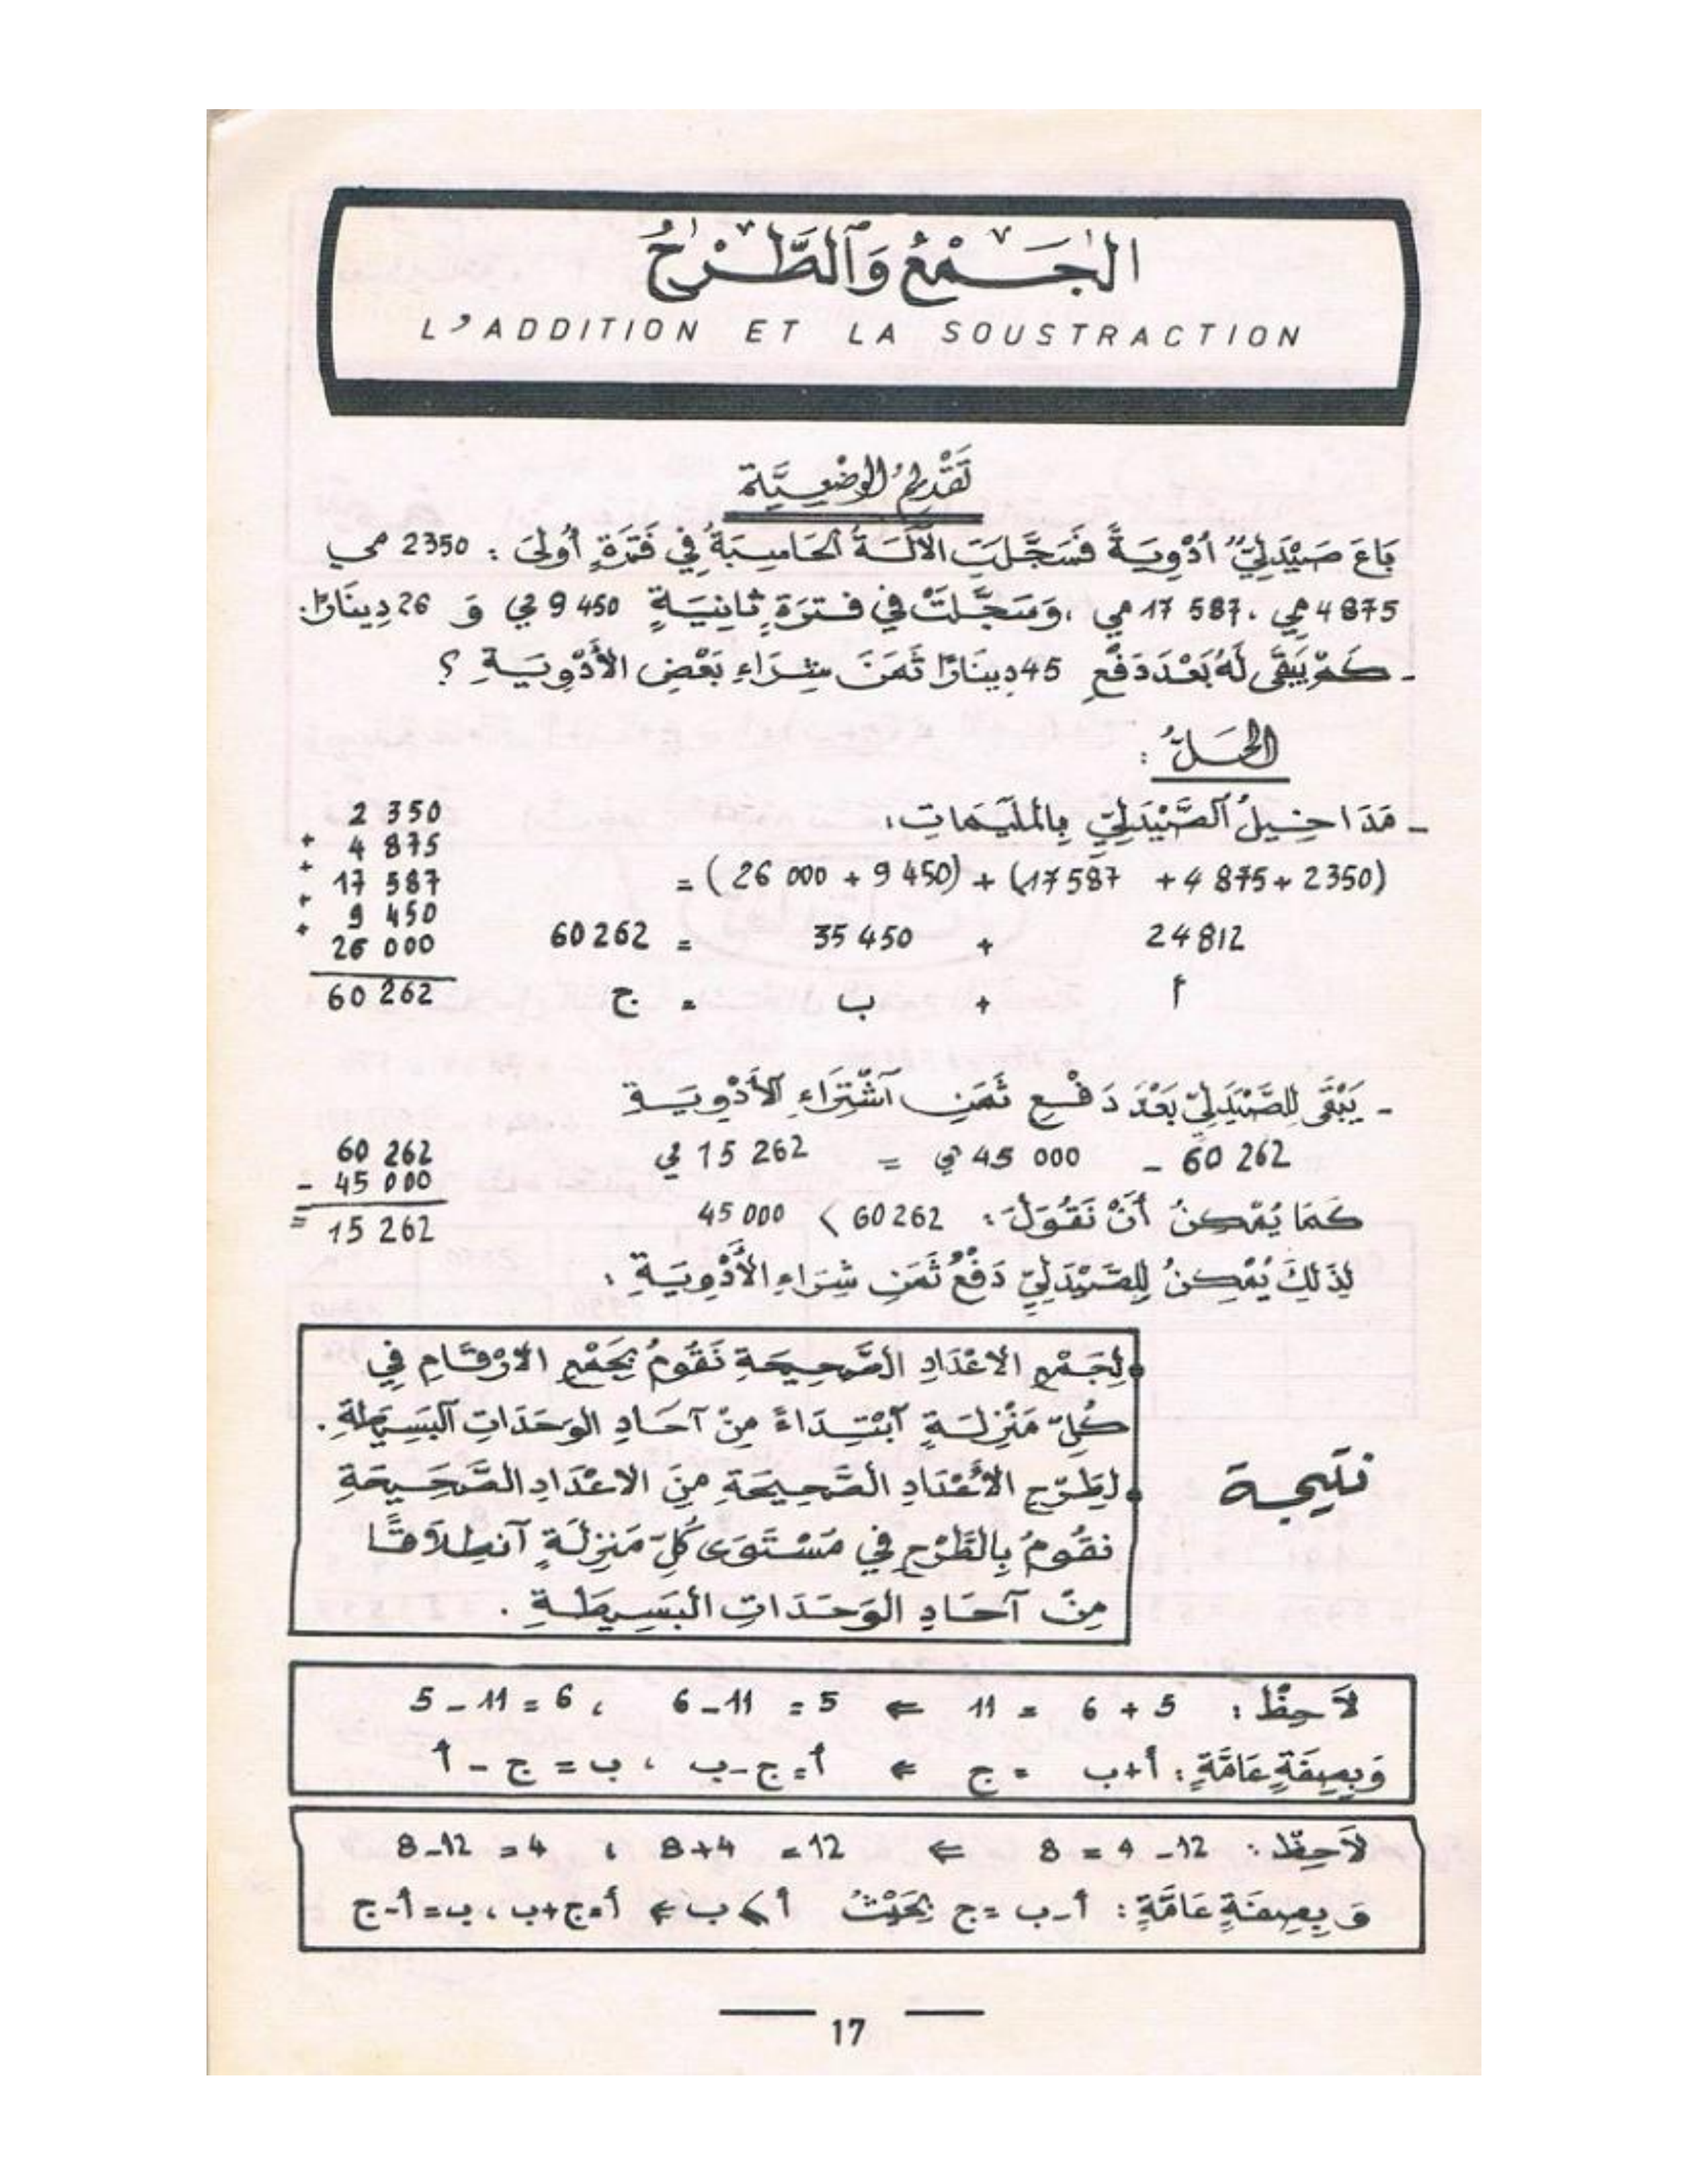 الجَمْعُ وَٱلطَّرْحُ
L'ADDITION ET LA SOUSTRACTION
تَقْدِيمُ الوَضْعِيَّة
بَاعَ صَيْدَلِيٌّ أدْوِيَةً فَسَجَّلَتِ الآلَةُ الحَاسِبَةُ فِي فَتْرَةٍ أُولَى : 2350 مي
4875 مي ، 17 587 مي ، وَسَجَّلَتْ فِي فَتْرَةٍ ثَانِيَةٍ 9 450 مي وَ 26 دِينَارًا.
- كَمْ يَبْقَى لَهُ بَعْدَ دَفْعِ 45 دِينَارًا ثَمَنَ شِرَاءِ بَعْضِ الأَدْوِيَةِ ؟
الحَلُّ :
- مَدَاخِيلُ ٱلصَّيْدَلِيِّ بِالمليمَاتِ :
(2350 + 4 875 + 17 587) + (9 450 + 26 000) =
24 812 + 35 450 = 60 262
أ + ب = ج
2 350
+ 4 875
+ 17 587
+ 9 450
+ 26 000
60 262
- يَبْقَى لِلصَّيْدَلِيِّ بَعْدَ دَفْعِ ثَمَنِ ٱشْتِرَاءِ الأَدْوِيَةِ
60 262 - 45 000 مي = 15 262 مي
كَمَا يُمْكِنُ أَنْ نَقُولَ : 60 262 > 45 000
لِذَلِكَ يُمْكِنُ لِلصَّيْدَلِيِّ دَفْعُ ثَمَنِ شِرَاءِ الأَدْوِيَةِ .
60 262
- 45 000
= 15 262
نتيجة
• لِجَمْعِ الاعْدَادِ الصَّحِيحَةِ نَقُومُ بِجَمْعِ الارْقَامِ فِي
كُلِّ مَنْزِلَةٍ ٱبْتِدَاءً مِنْ آحَادِ الوَحَدَاتِ ٱلبَسِيطَةِ .
• لِطَرْحِ الأَعْدَادِ الصَّحِيحَةِ مِنَ الاعْدَادِ الصَّحِيحَةِ
نقُومُ بِالطَّرْحِ فِي مُسْتَوَى كُلِّ مَنْزِلَةٍ ٱنْطِلَاقًا
مِنْ آحَادِ الوَحَدَاتِ البَسِيطَةِ .
لاَحِظْ : 5 + 6 = 11 ⇐ 5 = 11 - 6 ، 6 = 11 - 5
وَبِصِفَةٍ عَامَّةٍ : أ + ب = ج ⇐ أ = ج - ب ، ب = ج - أ
لاَحِظْ : 12 - 4 = 8 ⇐ 12 = 4 + 8 ، 4 = 12 - 8
وَبِصِفَةٍ عَامَّةٍ : أ - ب = ج بِحَيْثُ أ ⩾ ب ⇐ أ = ج + ب ، ب = أ - ج
17